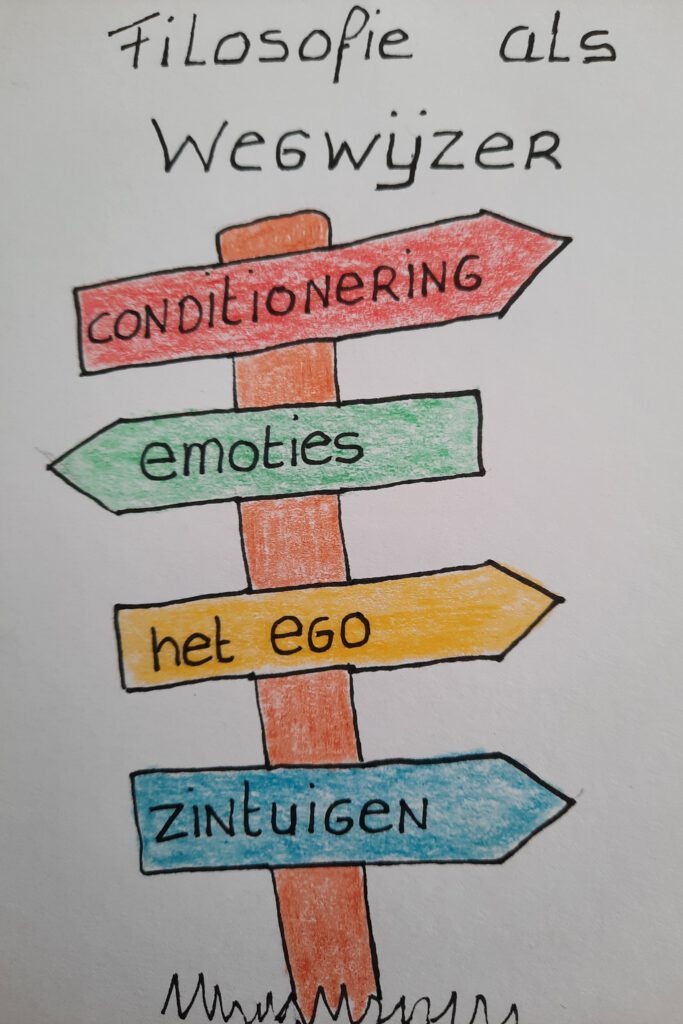 Filosofie als
Wegwijzer
CONDITIONERING
emoties
het EGO
ZINTUIGEN